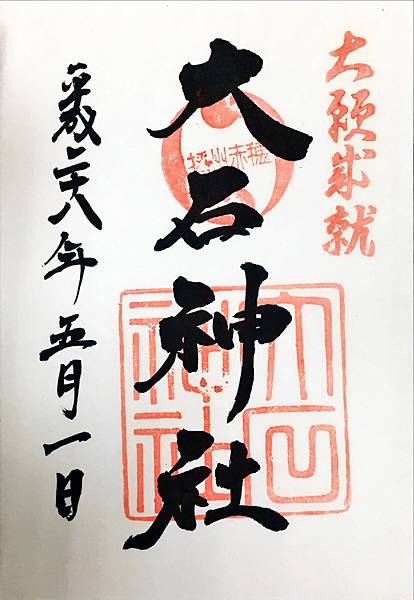 大願成就
播州赤穂
大石神社
大石神社
平成二十八年五月一日